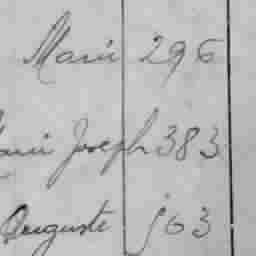 Marie 296
Marie Joseph 383
Auguste 503